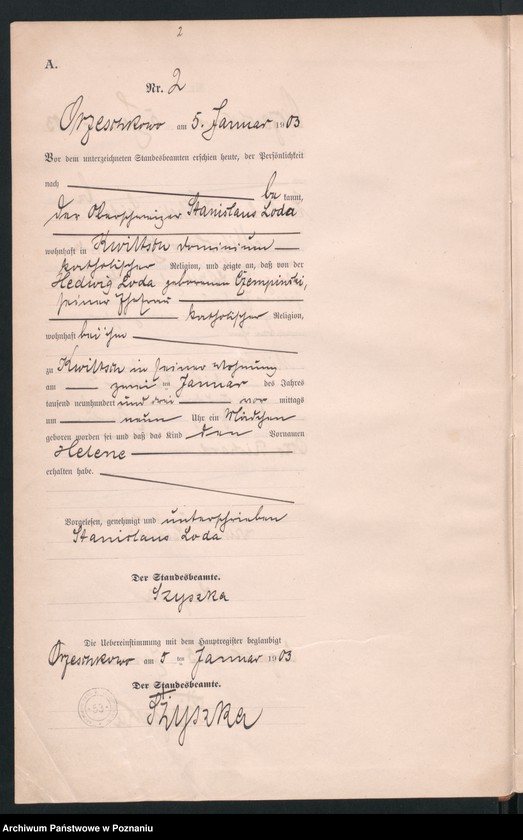 2
A.
Nr. 2
Orzeschkowo am 5. Januar 1903
Vor dem unterzeichneten Standesbeamten erschien heute, der Persönlichkeit
nach be kannt,
der Oberschweizer Stanislaus Loda
wohnhaft in Kwiltsch dominium
katholischer Religion, und zeigte an, daß von der
Hedwig Loda geborenen Czempinski,
seiner Ehefrau
katholischer Religion,
wohnhaft bei ihm
zu Kwiltsch in seiner Wohnung
am zwei ten Januar des Jahres
tausend neunhundert und drei vor mittags
um neun Uhr ein Mädchen
geboren worden sei und daß das Kind den Vornamen
Helene
erhalten habe.
Vorgelesen, genehmigt und unterschrieben
Stanislaus Loda
Der Standesbeamte.
Szyszka
Die Uebereinstimmung mit dem Hauptregister beglaubigt
Orzeschkowo am 5 ten Januar 1903
Der Standesbeamte.
Szyszka
53
Archiwum Państwowe w Poznaniu